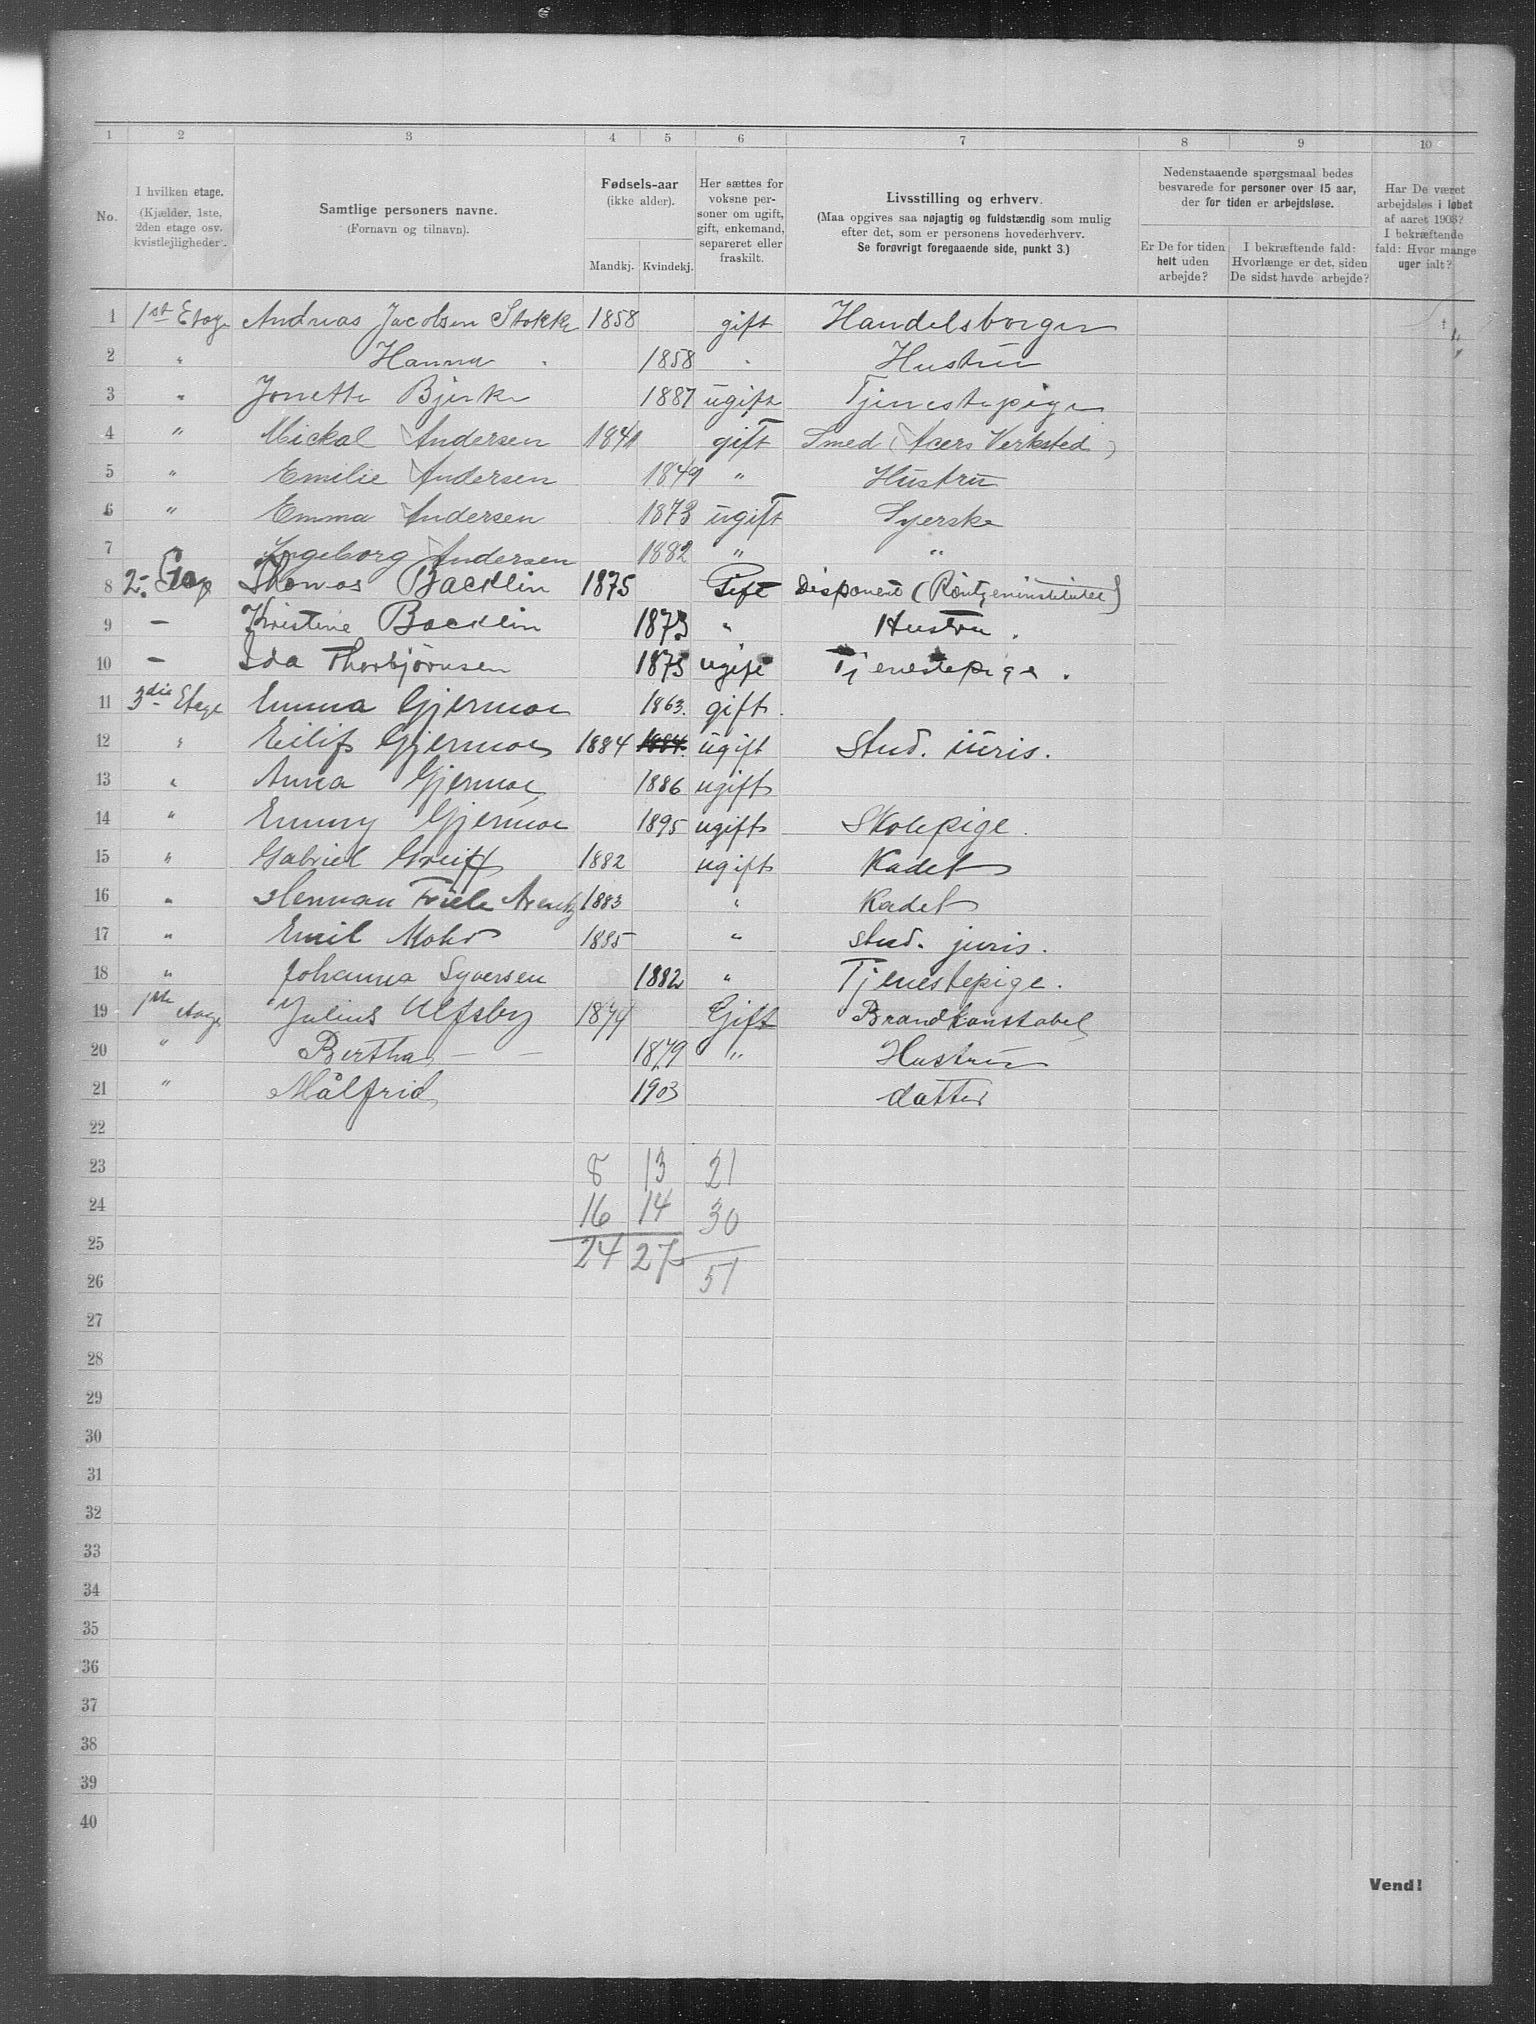 1 2 3 4 5 6 7 8 9 10
No. I hvilken etage. (Kjælder, 1ste, 2den etage osv. kvistleiligheder).
Samtlige personers navne. (Fornavn og tilnavn).
Fødsels-aar (ikke alder). Mandkj. Kvindekj.
Her sættes for voksne personer om ugift, gift, enkemand, separeret eller fraskilt.
Livsstilling og erhverv. (Maa opgives saa nøjagtig og fuldstændig som mulig efter det, som er personens hovederhverv. Se forøvrigt foregaaende side, punkt 3.)
Nedenstaaende spørgsmaal bedes besvarede for personer over 15 aar, der for tiden er arbejdsløse.
Er De for tiden helt uden arbejde?
I bekræftende fald: Hvorlænge er det, siden De sidst havde arbejde?
Har De været arbejdsløs i løbet af aaret 1903? I bekræftende fald: Hvor mange uger ialt?
1 1st Etage Andreas Jacobsen Stokke 1858 gift Handelsborger
2 " Hanna " 1858 " Hustru
3 " Jonette Bjerke 1887 ugift Tjenestepige
4 " Mickal Andersen 1841 gift Smed (Acers Verksted)
5 " Emilie Andersen 1849 " Hustru
6 " Emma Andersen 1873 ugift Syerske
7 Ingeborg Andersen 1882 " "
8 2. Etage Thomas Backlin 1875 Gift Disponent (Röntgeninstitutet)
9 — Kristine Backlin 1873 " Hustru.
10 — Ida Thorbjörnsen 1875 ugift Tjenestepige.
11 3die Etage Emma Gjermoe 1863. gift.
12 " Eilif Gjermoe 1884 1884. ugift stud. iuris.
13 " Anna Gjermoe 1886 ugift
14 " Emmy Gjermoe 1895 ugift Skolepige.
15 " Gabriel Greiff 1882 ugift Kadet
16 " Herman Friele Arentz 1883 " Kadet
17 " Emil Mohr 1885 " stud. juris.
18 " Johanna Syversen 1882 " Tjenestepige.
19 1ste etage Julius Ulfsby 1879 Gift Brandkonstabel
20 " Bertha — — 1879 " Hustru
21 " Målfrid 1903 datter
22
23 8 13 21
24 16 14 30
25 24 27
26 51
27
28
29
30
31
32
33
34
35
36
37
38
39
40
Vend!